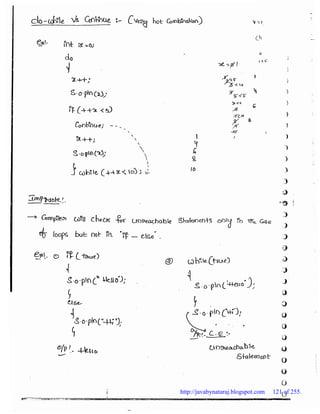 do-while Vs Continue :- (Very hot Combination)
Ex:- int x=0;
do
{
x++;
S.o.pln(x);
if (++x < 5)
Continue;
x++;
S.o.pln(x);
} while (++x < 10);
1
4
6
8
10
Important :-
→ Compiler will check for unreachable statements only in the case
of loops but not in "if - else".
Ex:- ① if (true)
{
S.o.pln("Hello");
}
else
{
S.o.pln("Hi");
}
o/p:- Hello
② while (true)
{
S.o.pln("Hello");
}
S.o.pln("Hi");
C.E:-
Unreachable
Statement
http://javabynataraj.blogspot.com 121 of 255.